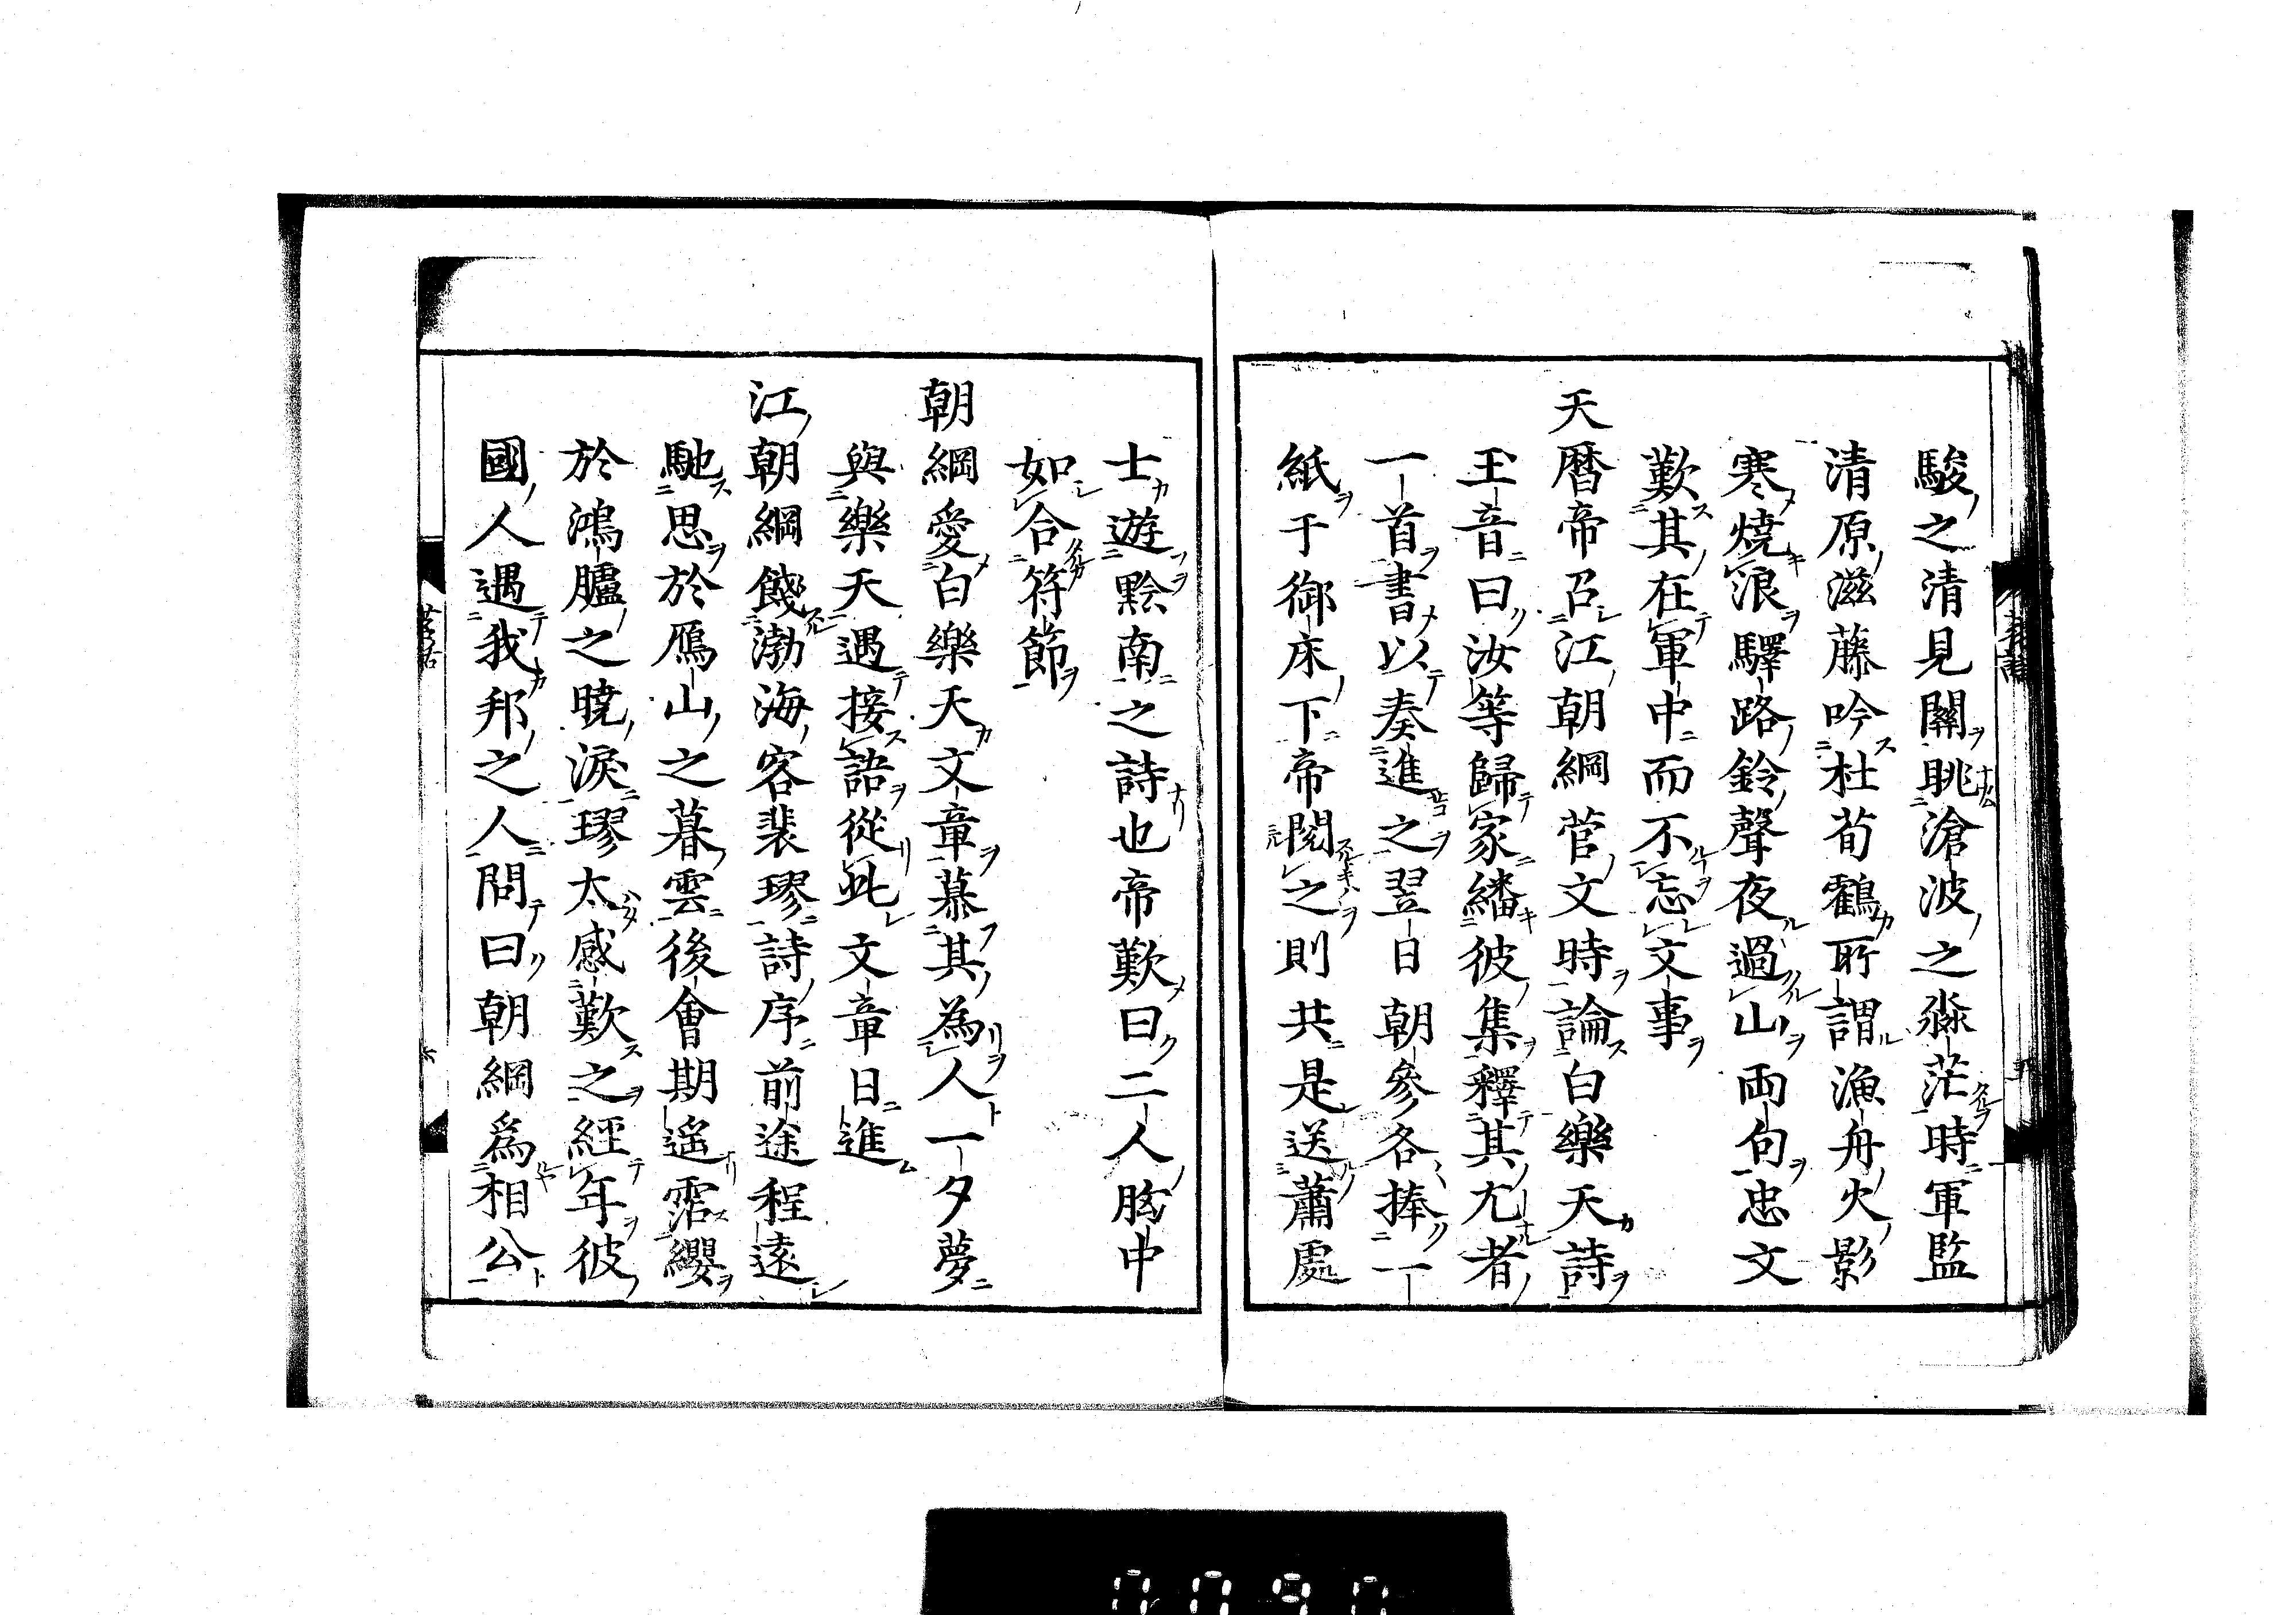 駿之清見關眺滄波之淼茫時軍監
清原滋藤吟杜荀鶴所謂漁舟火影
寒燒浪驛路鈴聲夜過山兩句忠文
歎其在軍中而不忘文事
天曆帝召江朝綱菅文時論白樂天詩
玉音曰汝等歸家繙彼集釋其尤者
一首書以奏進之翌日朝參各捧一
紙于御床下帝閱之則共是送蕭處
士遊黔南之詩也帝歎曰二人胸中
如合符節
朝綱愛白樂天文章慕其為人一夕夢
與樂天遇接語從此文章日進
江朝綱餞渤海客裴璆詩序前途程遠
馳思於鴈山之暮雲後會期遙霑纓
於鴻臚之曉淚璆太感歎之經年彼
國人遇我邦之人問曰朝綱為相公